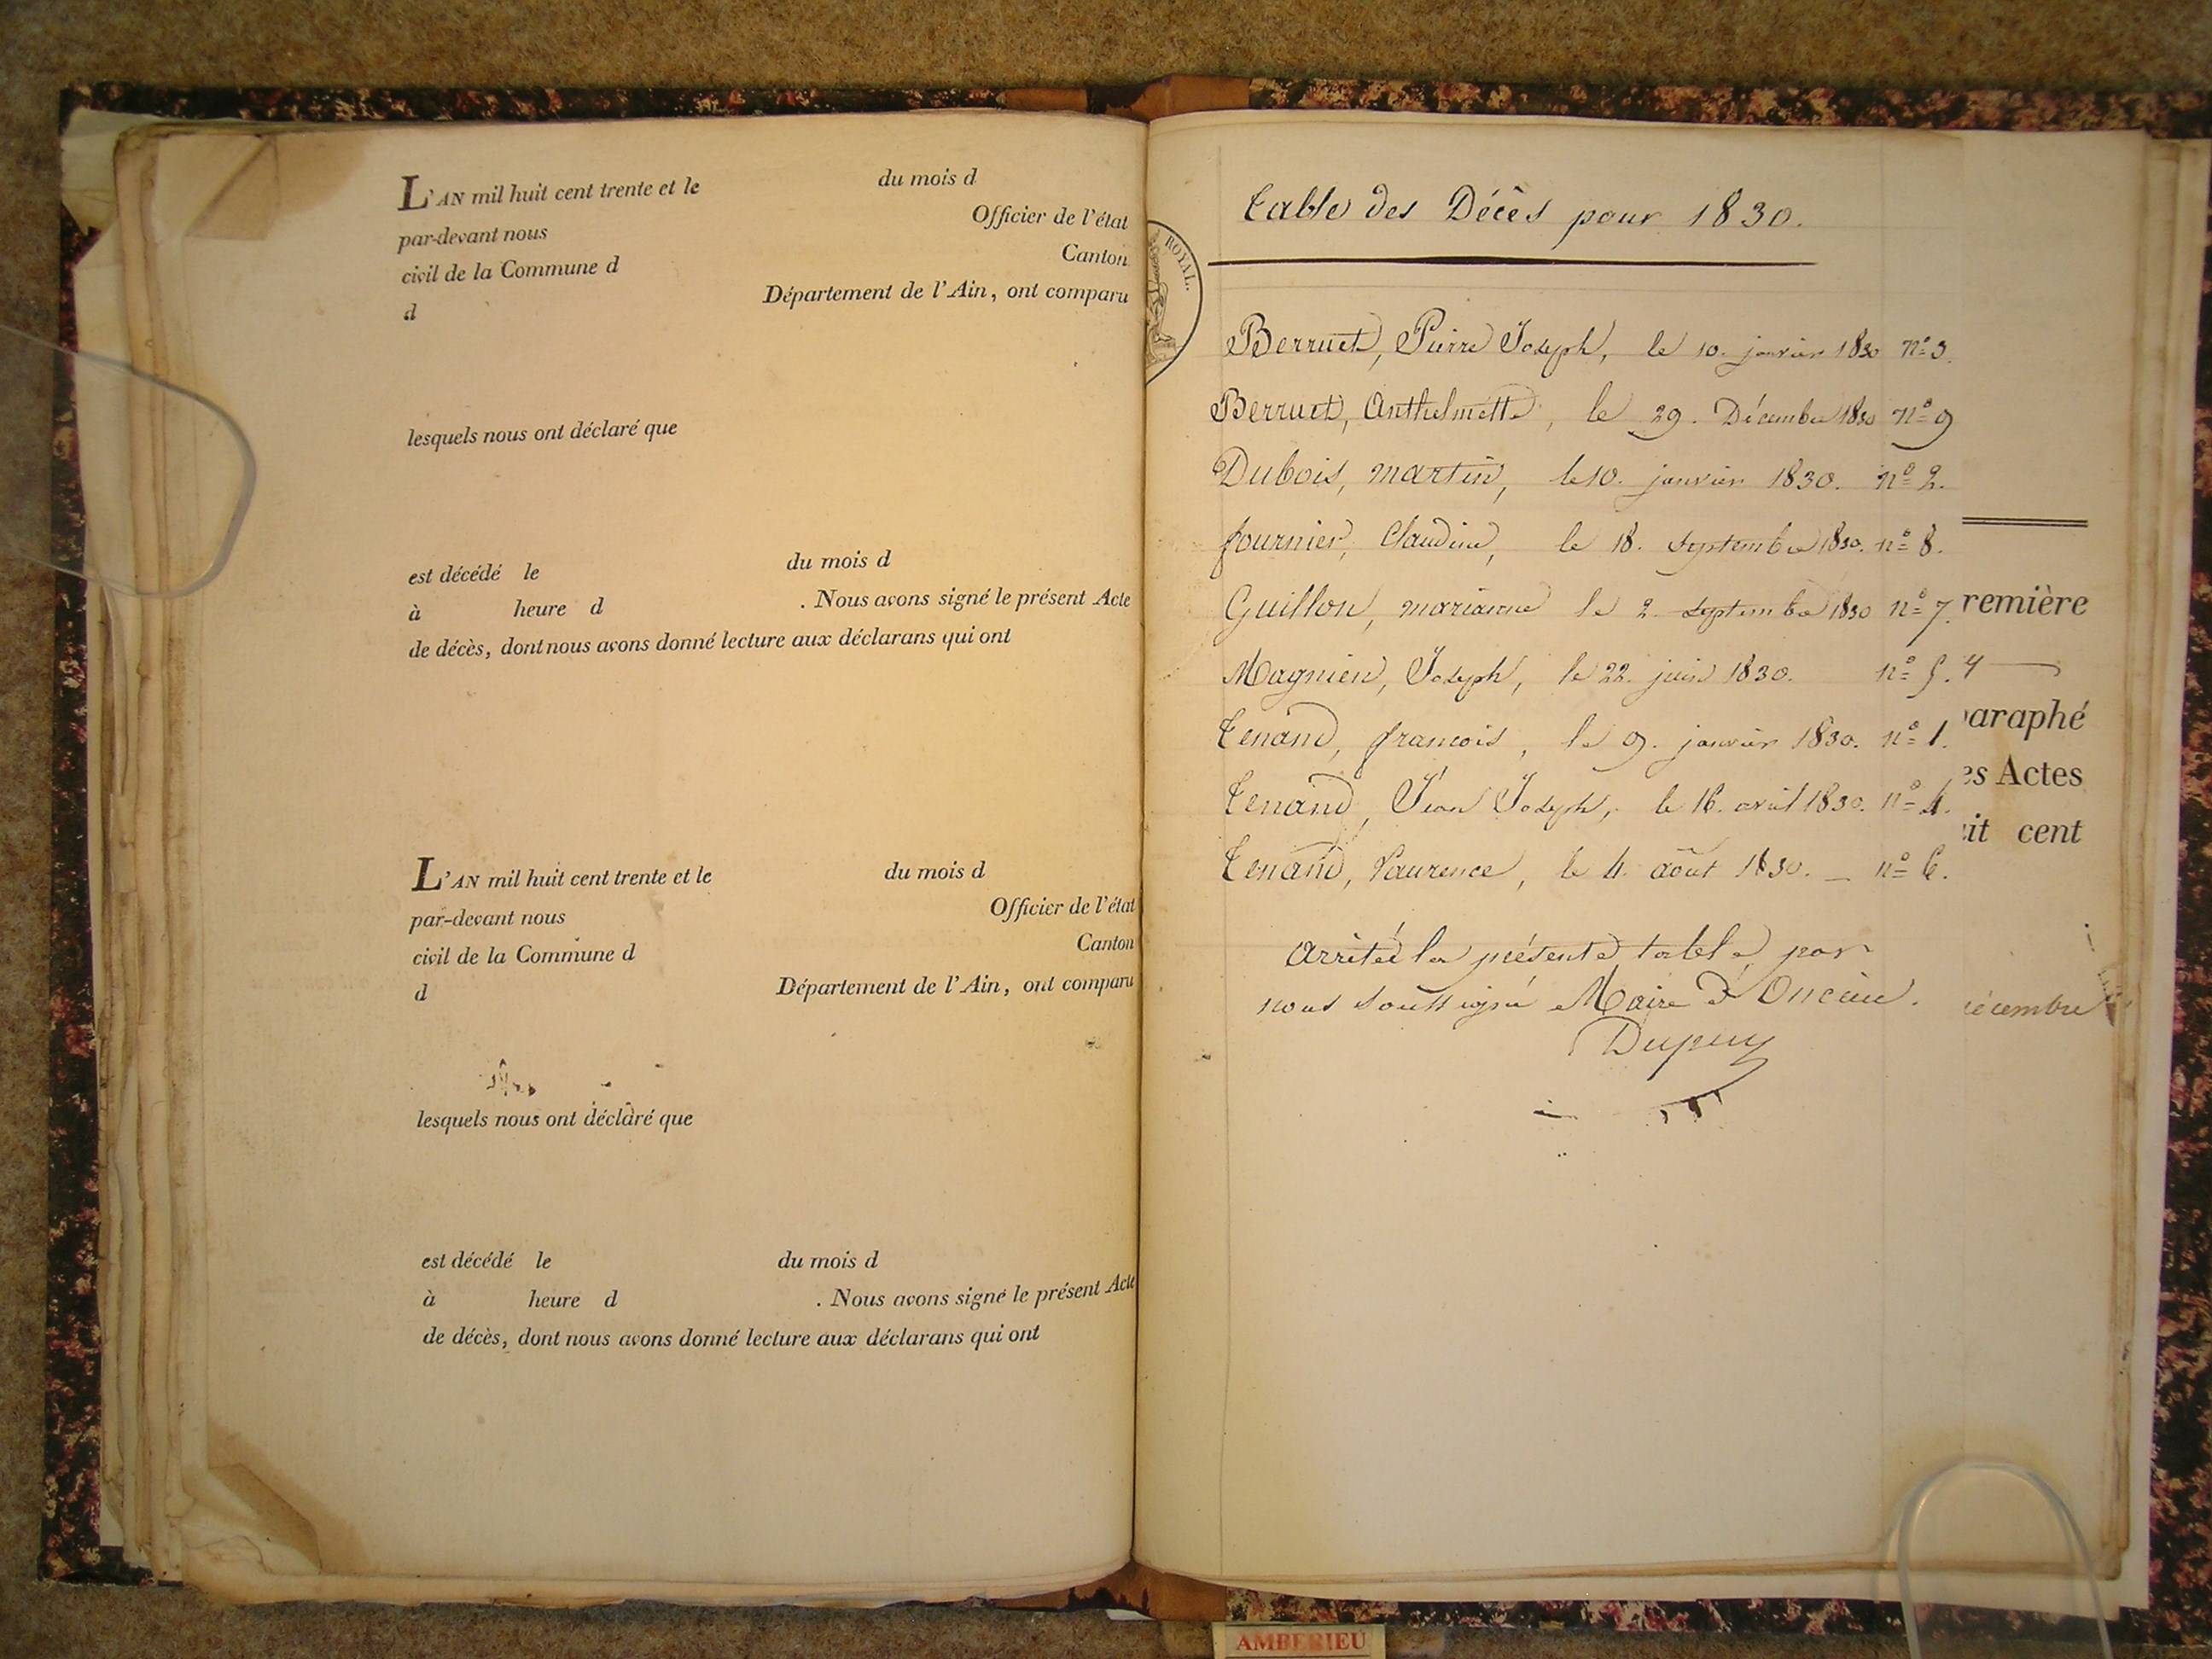 L'AN mil huit cent trente et le du mois d
par-devant nous Officier de l'état
civil de la Commune d Canton
d Département de l'Ain, ont comparu
lesquels nous ont déclaré que
est décédé le du mois d
à heure d . Nous avons signé le présent Acte
de décès, dont nous avons donné lecture aux déclarans qui ont
L'AN mil huit cent trente et le du mois d
par-devant nous Officier de l'état
civil de la Commune d Canton
d Département de l'Ain, ont comparu
lesquels nous ont déclaré que
est décédé le du mois d
à heure d . Nous avons signé le présent Acte
de décès, dont nous avons donné lecture aux déclarans qui ont
ROYAL.
Table des Décès pour 1830.
Berruet, Pierre Joseph, le 10. janvier 1830 n° 3.
Berruet, Anthelmette, le 29. Décembre 1830 n° 9
Dubois, martin, le 10. janvier 1830. n° 2.
fournier, Claudine, le 18. Septembre 1830. n° 8.
Guillon, marianne le 2. Septembre 1830 n° 7.
Magnien, Joseph, le 22. juin 1830. n° 5.
Tenand, francois, le 9. janvier 1830. n° 1.
Tenand, Jean Joseph, le 16. avril 1830. n° 4.
Tenand, Laurence, le 4. août 1830. _ n° 6.
Arrêtée la présente table par
nous soussigné Maire d'Oncieu.
Dupuy
remière
4
paraphé
es Actes
it cent
décembre
AMBERIEU